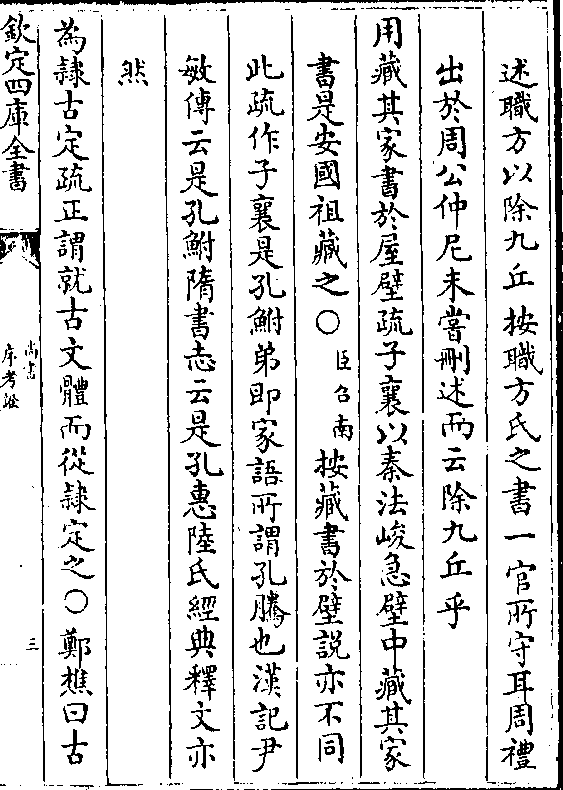 述職方以除九丘按職方氏之書一官所守耳周禮
出於周公仲尼未嘗刪述而云除九丘乎
用藏其家書於屋壁疏子襄以秦法峻急壁中藏其家
書是安國祖藏之○臣召南按藏書於壁說亦不同
此疏作子襄是孔鮒弟即家語所謂孔騰也漢記尹
敏傳云是孔鮒隋書志云是孔惠陸氏經典釋文亦
然
為隸古定疏正謂就古文體而從隸定之○鄭樵曰古
欽定四庫全書
尚書
序考證
三